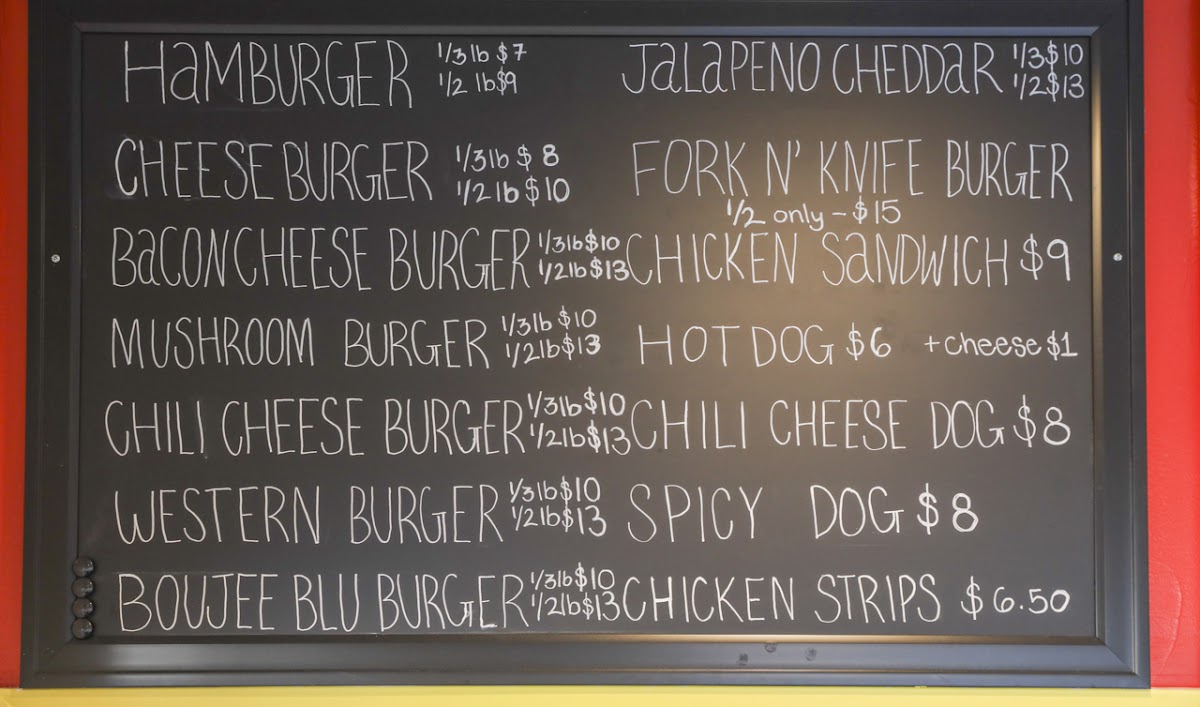 HaMBURGER 1/3 lb $7
1/2 lb $9
CHEESE BURGER 1/3 lb $8
1/2 lb $10
BaCON CHEESE BURGER 1/3 lb $10
1/2 lb $13
MUSHROOM BURGER 1/3 lb $10
1/2 lb $13
CHILI CHEESE BURGER 1/3 lb $10
1/2 lb $13
WESTERN BURGER 1/3 lb $10
1/2 lb $13
BOUJEE BLU BURGER 1/3 lb $10
1/2 lb $13
JaLaPENO CHEDDaR 1/3 $10
1/2 $13
FORK N' KNIFE BURGER
1/2 only - $15
CHICKEN SaNDWICH $9
HOT DOG $6 + cheese $1
CHILI CHEESE DOG $8
SPICY DOG $8
CHICKEN STRIPS $6.50